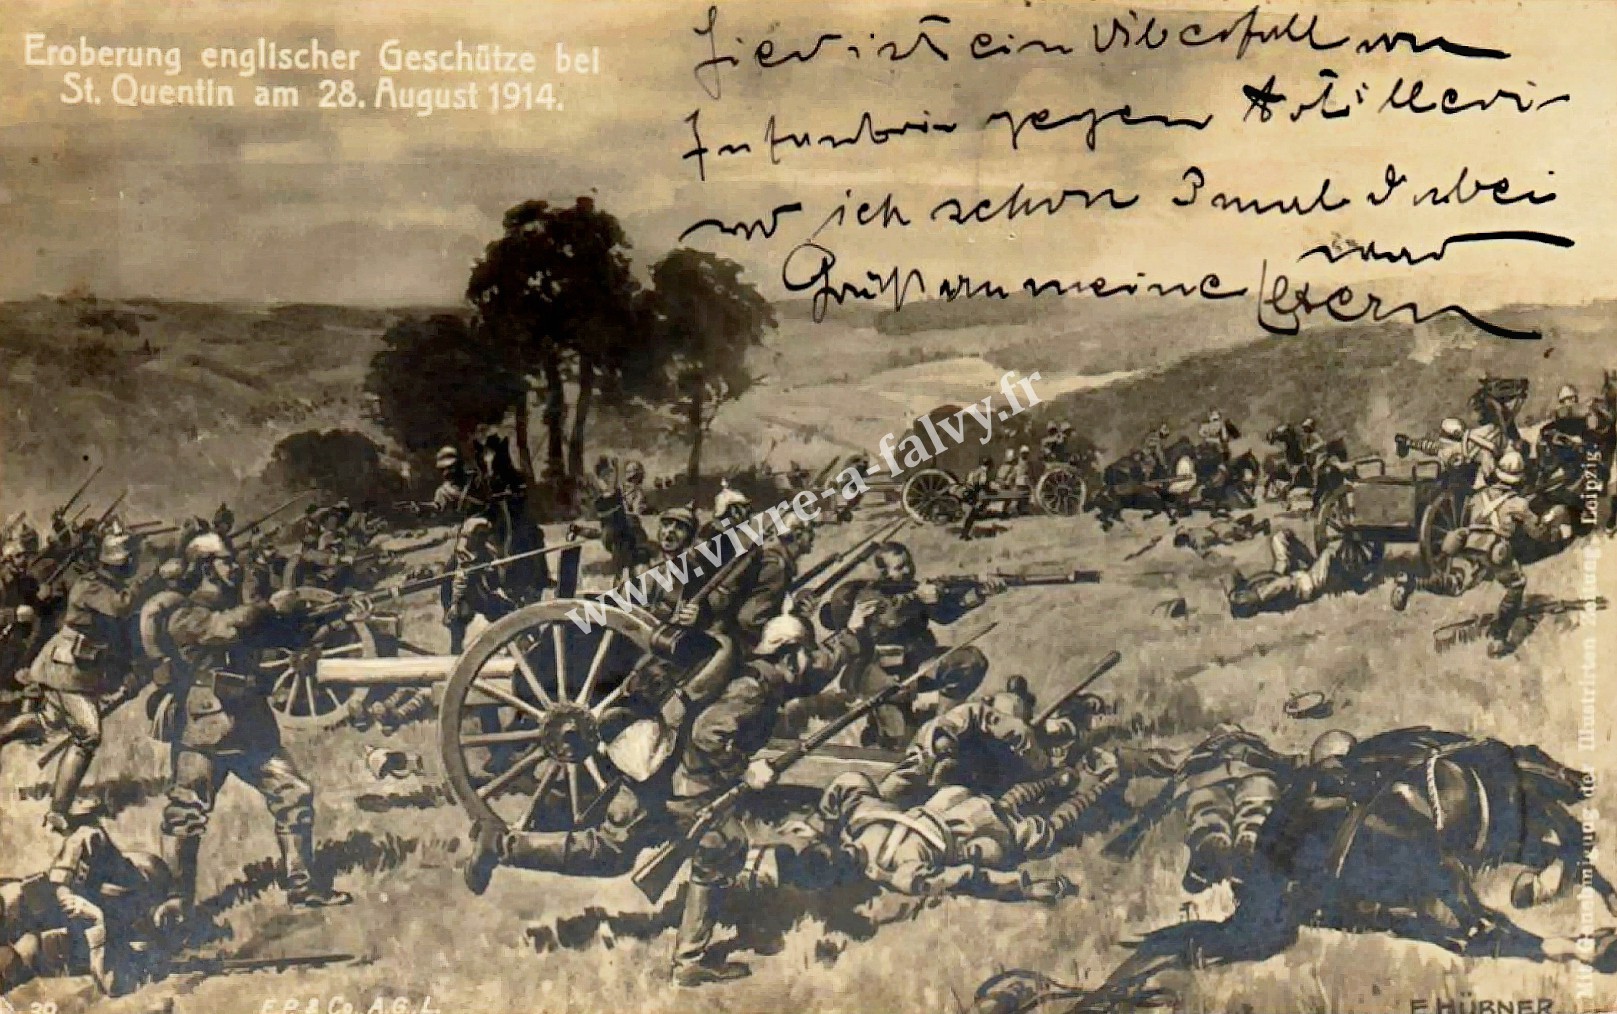 Eroberung englischer Geschütze bei
St. Quentin am 28. August 1914.
Hier ist ein Überfall von
Infanterie gegen Artillerie
wo ich schon 3 mal dabei
war
Grüß an meine Eltern
www.vivre-a-falvy.fr
Mit Genehmigung der Illustrirten Zeitung, Leipzig.
E.P. & Co. A.G. L.
E. HÜBNER